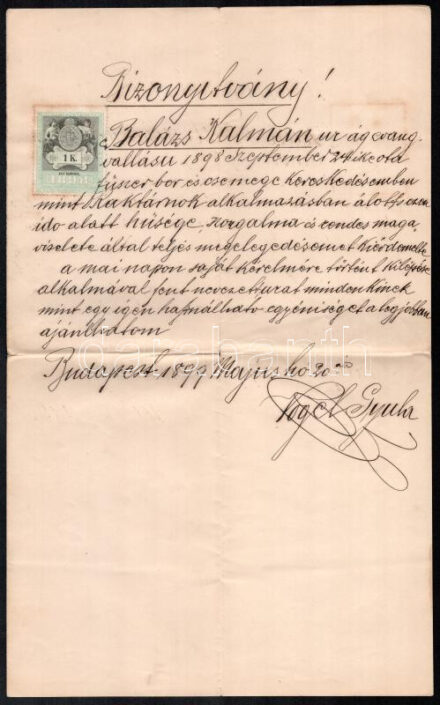 Bizonyitvány!
Balázs Kálmán ur ág evang.
vallásu 1898 Szeptember 24 ike óta
füszer bor és csemege kereskedésemben
mint Raktárnok alkalmazásban állott ezen
idö alatt hüsége, szorgalma és rendes maga
viselete által teljes megelégedésemet kiérdemelte
a mai napon saját kérelmére történt kilépése
alkalmával fent nevezett urat mindenkinek
mint egy igen használható egyéniséget a legjobban
ajánlhatom
Budapest 1899 Május hó 20
Gyula
1 K.
darabanth